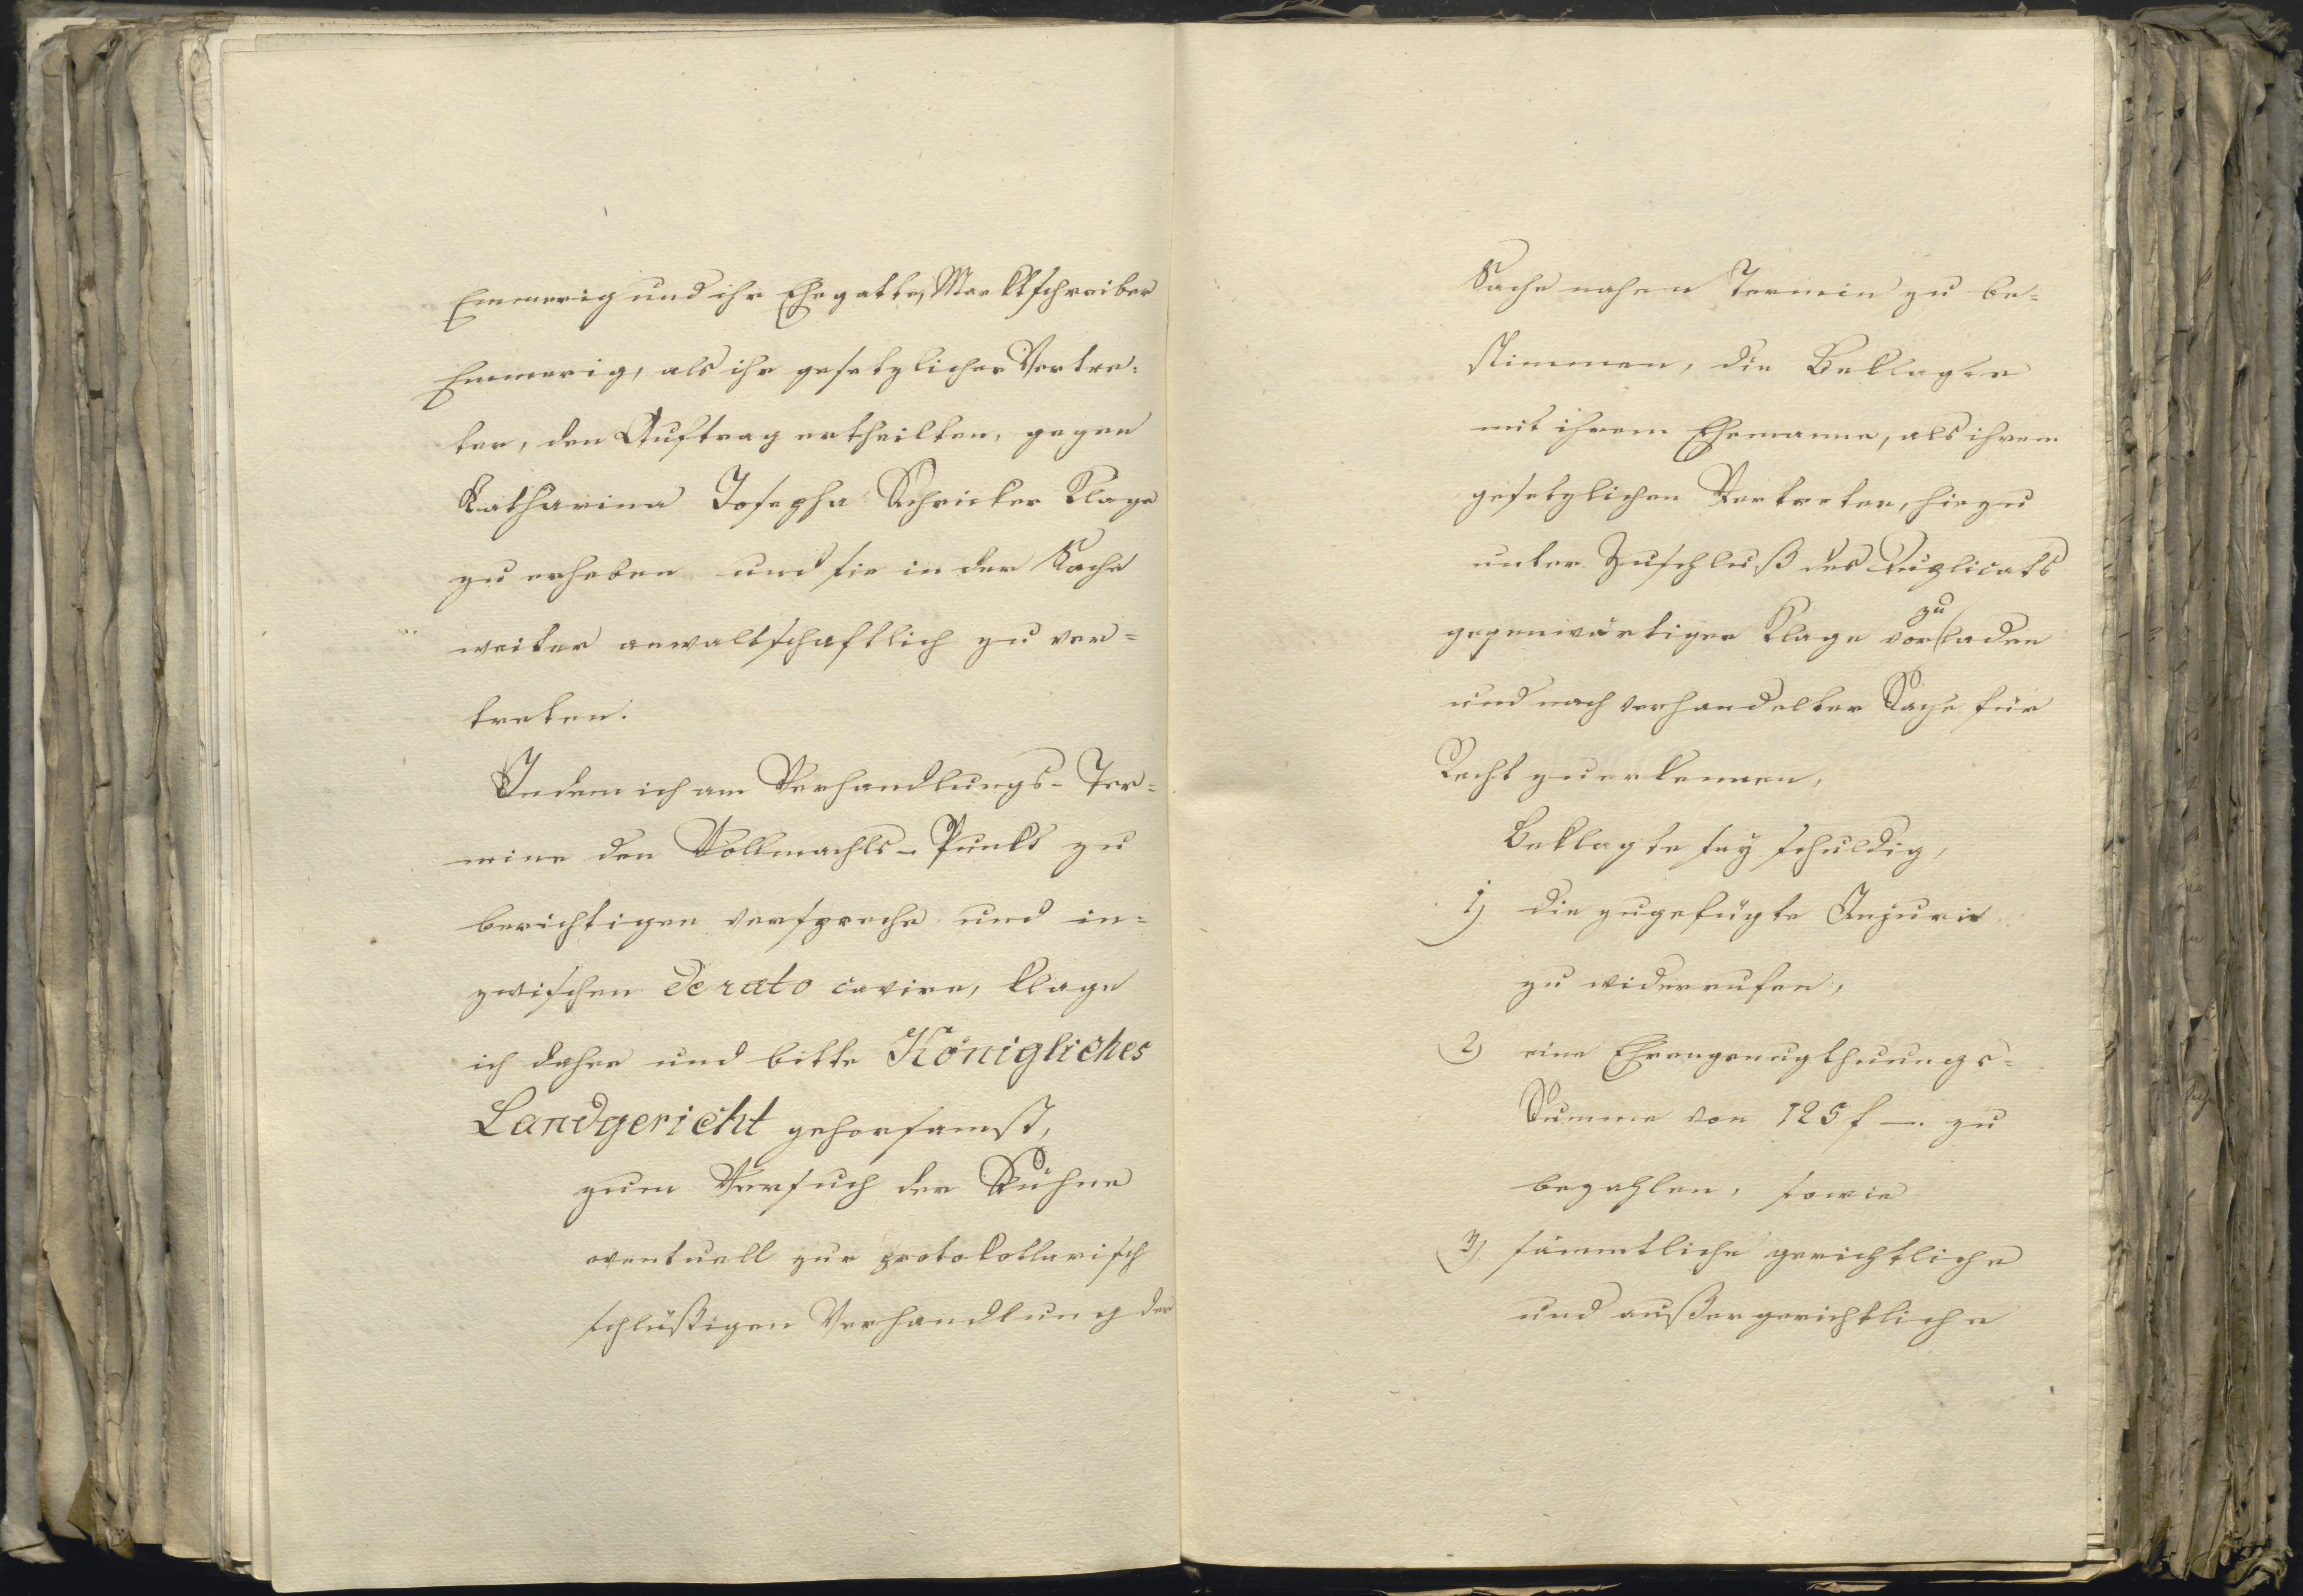 Emmerig und ihr Ehegatte, Marktschreiber
Emmerig, als ihr gesetzlicher Vertre-
ter, den Auftrag ertheilten, gegen
Katharina Josepha Schricker Klage
zu erheben und sie in der Sache
weiter anwaltschaftlich zu ver-
treten.
Indem ich am Verhandlungs-Ter-
mine den Vollmachts-Punkt zu
berichtigen verspreche und in-
zwischen de rato cavire, klage
ich daher und bitte Königliches
Landgericht gehorsamst,
zum Versuch der Sühne
eventuell zur protokollarisch
schlüßigen Verhandlung der
Sache nahen Termin zu be-
stimmen, die Beklagte
mit ihrem Ehemanne, als ihrem
gesetzlichen Vertreter, hiezu
unter Zuschluß des Duplicats
gegenwärtiger Klage vorzuladen
und nach verhandelter Sache für
Recht zu erkennen,
Beklagte sey schuldig,
1) die zugefügte Injurie
zu widerrufen,
2) eine Ehrengenugthuungs-
Summe von 125 f —. zu
bezahlen, sowie
3) sämmtliche gerichtliche
und außergerichtliche